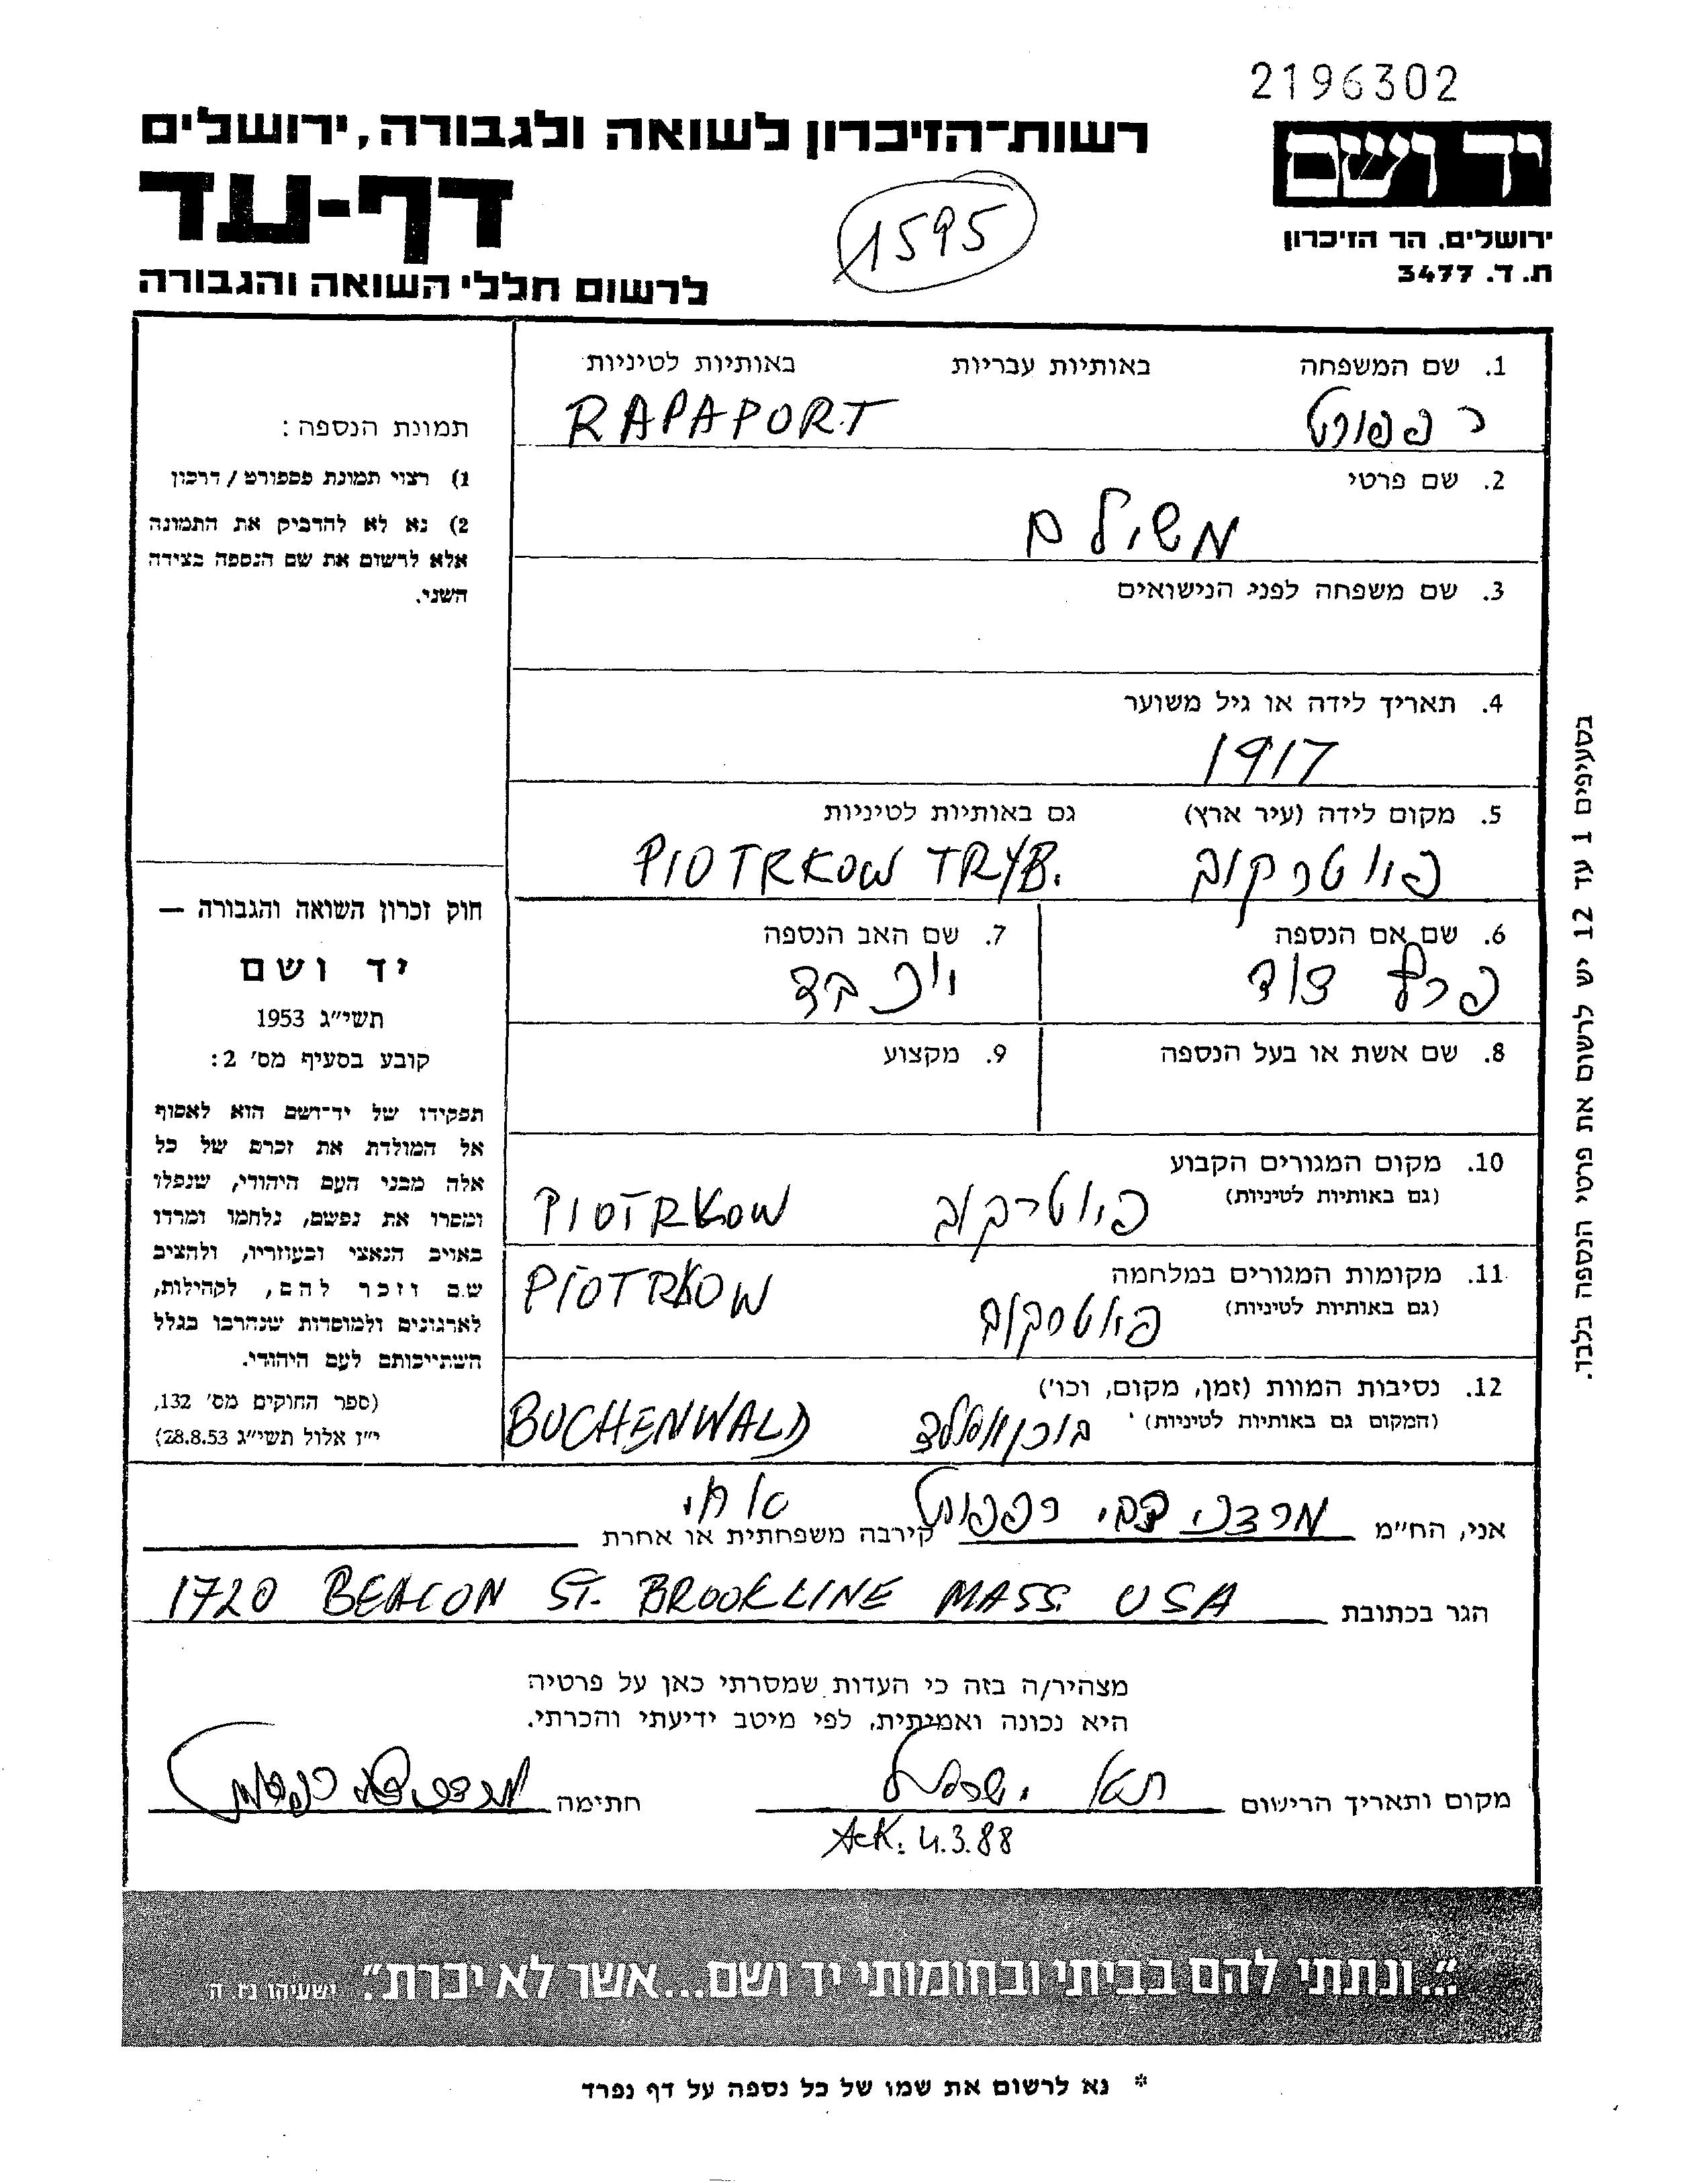 2196302
רשות־הזיכרון לשואה ולגבורה, ירושלים
יד ושם
דף-עד
1595
ירושלים, הר הזיכרון
ת. ד. 3477
לרשום חללי השואה והגבורה
1. שם המשפחה באותיות עבריות באותיות לטיניות
רפפורט RAPAPORT
2. שם פרטי
משולם
3. שם משפחה לפני הנישואים
4. תאריך לידה או גיל משוער
1917
5. מקום לידה (עיר ארץ) גם באותיות לטיניות
פיוטרקוב PIOTRKOW TRYB.
6. שם אם הנספה 7. שם האב הנספה
8. שם אשת או בעל הנספה 9. מקצוע
10. מקום המגורים הקבוע
(גם באותיות לטיניות)
פיוטרקוב PIOTRKOW
11. מקומות המגורים במלחמה
(גם באותיות לטיניות)
פיוטרקוב PIOTRKOW
12. נסיבות המוות (זמן, מקום, וכו')
(המקום גם באותיות לטיניות)
BUCHENWALD
תמונת הנספה:
1) רצוי תמונת פספורט / דרכון
2) נא לא להדביק את התמונה
אלא לרשום את שם הנספה בצידה
השני.
חוק זכרון השואה והגבורה —
יד ושם
תשי"ג 1953
קובע בסעיף מס' 2:
תפקידו של יד־ושם הוא לאסוף
אל המולדת את זכרם של כל
אלה מבני העם היהודי, שנפלו
ומסרו את נפשם, נלחמו ומרדו
באויב הנאצי ובעוזריו, ולהציב
שם וזכר להם, לקהילות,
לארגונים ולמוסדות שנהרבו בגלל
השתייכותם לעם היהודי.
(ספר החוקים מס' 132,
י"ז אלול תשי"ג 28.8.53)
בסעיפים 1 עד 12 יש לרשום את פרטי הנספה בלבד.
אני, הח"מ מרדכי צבי רפפורט קירבה משפחתית או אחרת אחי
הגר בכתובת 1720 BEACON ST. BROOKLINE MASS. USA
מצהיר/ה בזה כי העדות שמסרתי כאן על פרטיה
היא נכונה ואמיתית, לפי מיטב ידיעתי והכרתי.
מקום ותאריך הרישום ת"א ישראל חתימה
Ack. 4.3.88
"...ונתתי להם בביתי ובחומותי יד ושם...אשר לא יכרת". ישעיהו נו ה
* נא לרשום את שמו של כל נספה על דף נפרד